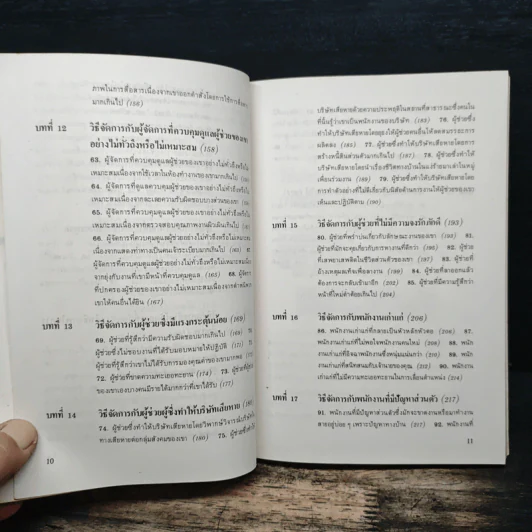 ภาพในการสื่อสารเนื่องจากเขาออกคำสั่งโดยการใช้การสั่งความ
มากเกินไป (156)
บทที่ 12 วิธีจัดการกับผู้จัดการที่ควบคุมดูแลผู้ช่วยของเขา
อย่างไม่ทั่วถึงหรือไม่เหมาะสม (158)
63. ผู้จัดการที่ควบคุมดูแลผู้ช่วยของเขาอย่างไม่ทั่วถึงหรือไม่
เหมาะสมเนื่องจากใช้เวลาในห้องทำงานของเขามากเกินไป (158)
64. ผู้จัดการที่ดูแลควบคุมผู้ช่วยของเขาอย่างไม่ทั่วถึงหรือไม่
เหมาะสมเนื่องจากละเลยความรับผิดชอบบางส่วนของเขา
65. ผู้จัดการที่ควบคุมดูแลผู้ช่วยของเขาอย่างไม่ทั่วถึงหรือไม่
เหมาะสมเนื่องจากตรวจสอบคุณภาพงานผิวเผินเกินไป
66. ผู้จัดการที่ควบคุมดูแลผู้ช่วยอย่างไม่ทั่วถึงหรือไม่เหมาะสม
เนื่องจากแสดงท่าทางเป็นคนเจ้าระเบียบมากเกินไป
ผู้จัดการที่ควบคุมดูแลผู้ช่วยอย่างไม่ทั่วถึงหรือไม่เหมาะสมเนื่อง
จากยุ่งกับงานที่เขามีหน้าที่ควบคุมดูแล (165) 68. ผู้จัดการ
ที่ปกครองผู้ช่วยของเขาอย่างไม่เหมาะสมเนื่องจากตำหนิ
เขาให้คนอื่นได้ยิน (167)
บทที่ 13 วิธีจัดการกับผู้ช่วยซึ่งมีแรงกระตุ้นน้อย (169)
69. ผู้ช่วยที่รู้สึกว่ามีความรับผิดชอบมากเกินไป
ผู้ช่วยซึ่งไม่ชอบงานที่ได้รับมอบหมายให้ปฏิบัติ
71. ผู้ช่วยที่ต้องการได้รับการมองคุณค่าของเขามากพอ
72. ผู้ช่วยที่ขาดความทะเยอทะยาน (174) 73. ผู้ช่วยที่รู้สึกว่า
ของเขาเองบางคนมีรายได้มากกว่าที่เขาได้รับ
บทที่ 14 วิธีจัดการกับผู้ช่วยผู้ซึ่งทำให้บริษัทเสียหาย
74. ผู้ช่วยซึ่งทำให้บริษัทเสียหายโดยวิพากษ์วิจารณ์บริษัทใน
ทางเสียหายต่อกลุ่มสังคมของเขา (180) 75. ผู้ช่วยซึ่งทำให้
10
บริษัทเสียหายด้วยความประพฤติในสถานที่สาธารณะซึ่งคนใน
ที่นั้นรู้ว่าเขาเป็นพนักงานของบริษัท
ทำให้บริษัทเสียหายโดยรองให้ผู้ช่วยคนอื่นให้ลดสมรรถะการ
ผลิตลง
สร้างหนี้สินส่วนตัวมากเกินไป
ทำให้บริษัทเสียหายโดยนำเรื่องชีวิตทางบ้านในแง่ร้ายมาเล่าในหมู่
เพื่อนร่วมงาน
การทำตัวอย่างที่ไม่ดีเกี่ยวกับนิสัยด้านการงานให้ผู้ช่วยของเขา
เห็นและปฏิบัติตาม
บทที่ 15 วิธีจัดการกับผู้ช่วยที่ไม่มีความจงรักภักดี (193)
80. ผู้ช่วยที่พร่ำบ่นเกี่ยวกับลักษณะงานของเขา
ผู้ช่วยที่มักจะคุยเกี่ยวกับการหางานที่ดีกว่า
ที่เสพยาเสพติดในชีวิตส่วนตัวของเขา
อ้างเหตุผลเท็จเพื่อลางาน
ต้องการจะกลับเข้ามาอีก
หน้าที่ใหม่ต่ำต้อยเกินไป
บทที่ 16 วิธีจัดการกับพนักงานเก่าแก่ (206)
86. พนักงานเก่าแก่ที่กลายเป็นตัวหลักตัวตอ
พนักงานเก่าแก่ที่ไม่พอใจพนักงานคนใหม่
งานเก่าแก่ที่อิจฉาพนักงานซึ่งหนุ่มแน่นกว่า
งานเก่าแก่ที่สนิทสนมกับเจ้านายของคุณ
งานเก่าแก่ที่ไม่มีความทะเยอทะยานในการเลื่อนตำแหน่ง
บทที่ 17 วิธีจัดการกับพนักงานที่มีปัญหาส่วนตัว (217)
91. พนักงานที่มีปัญหาส่วนตัวซึ่งมักจะขาดงานหรือมาทำงาน
สายอยู่บ่อย ๆ เพราะปัญหาทางบ้าน (217) 92. พนักงานที่
11